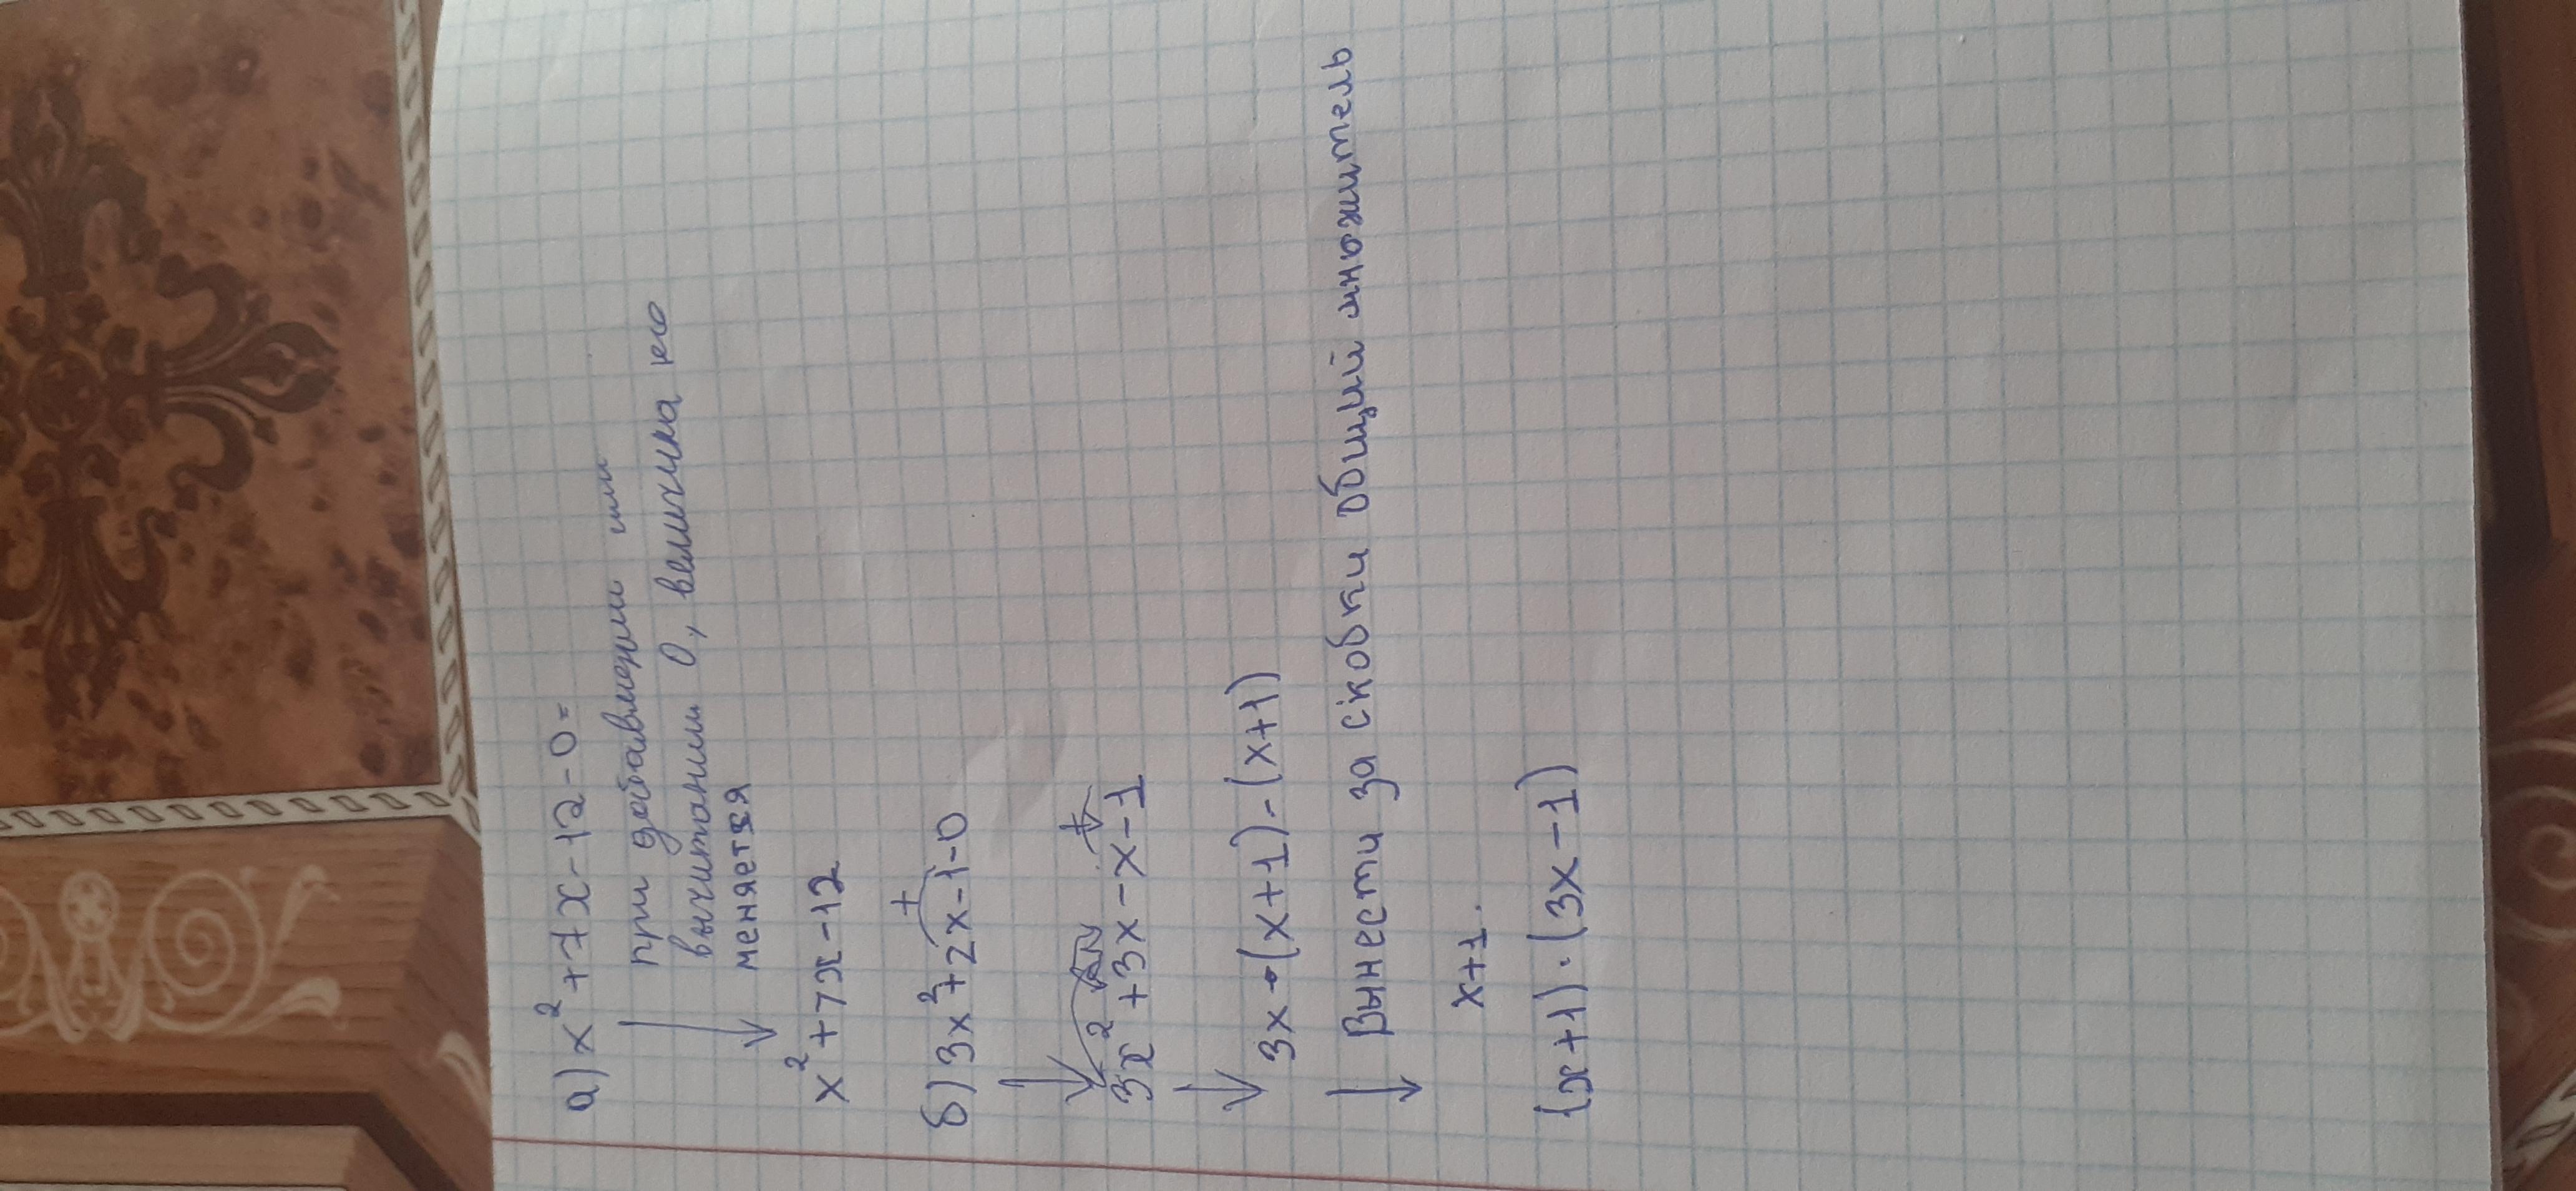 а) x² + 7x - 12 - 0 =
при добавлении или
вычитании 0, величина не
меняется
x² + 7x - 12
+
б) 3x² + 2x - 1 - 0
3x² + 3x - x - 1
3x · (x + 1) - (x + 1)
Вынести за скобки общий множитель
x + 1.
(x + 1) · (3x - 1)